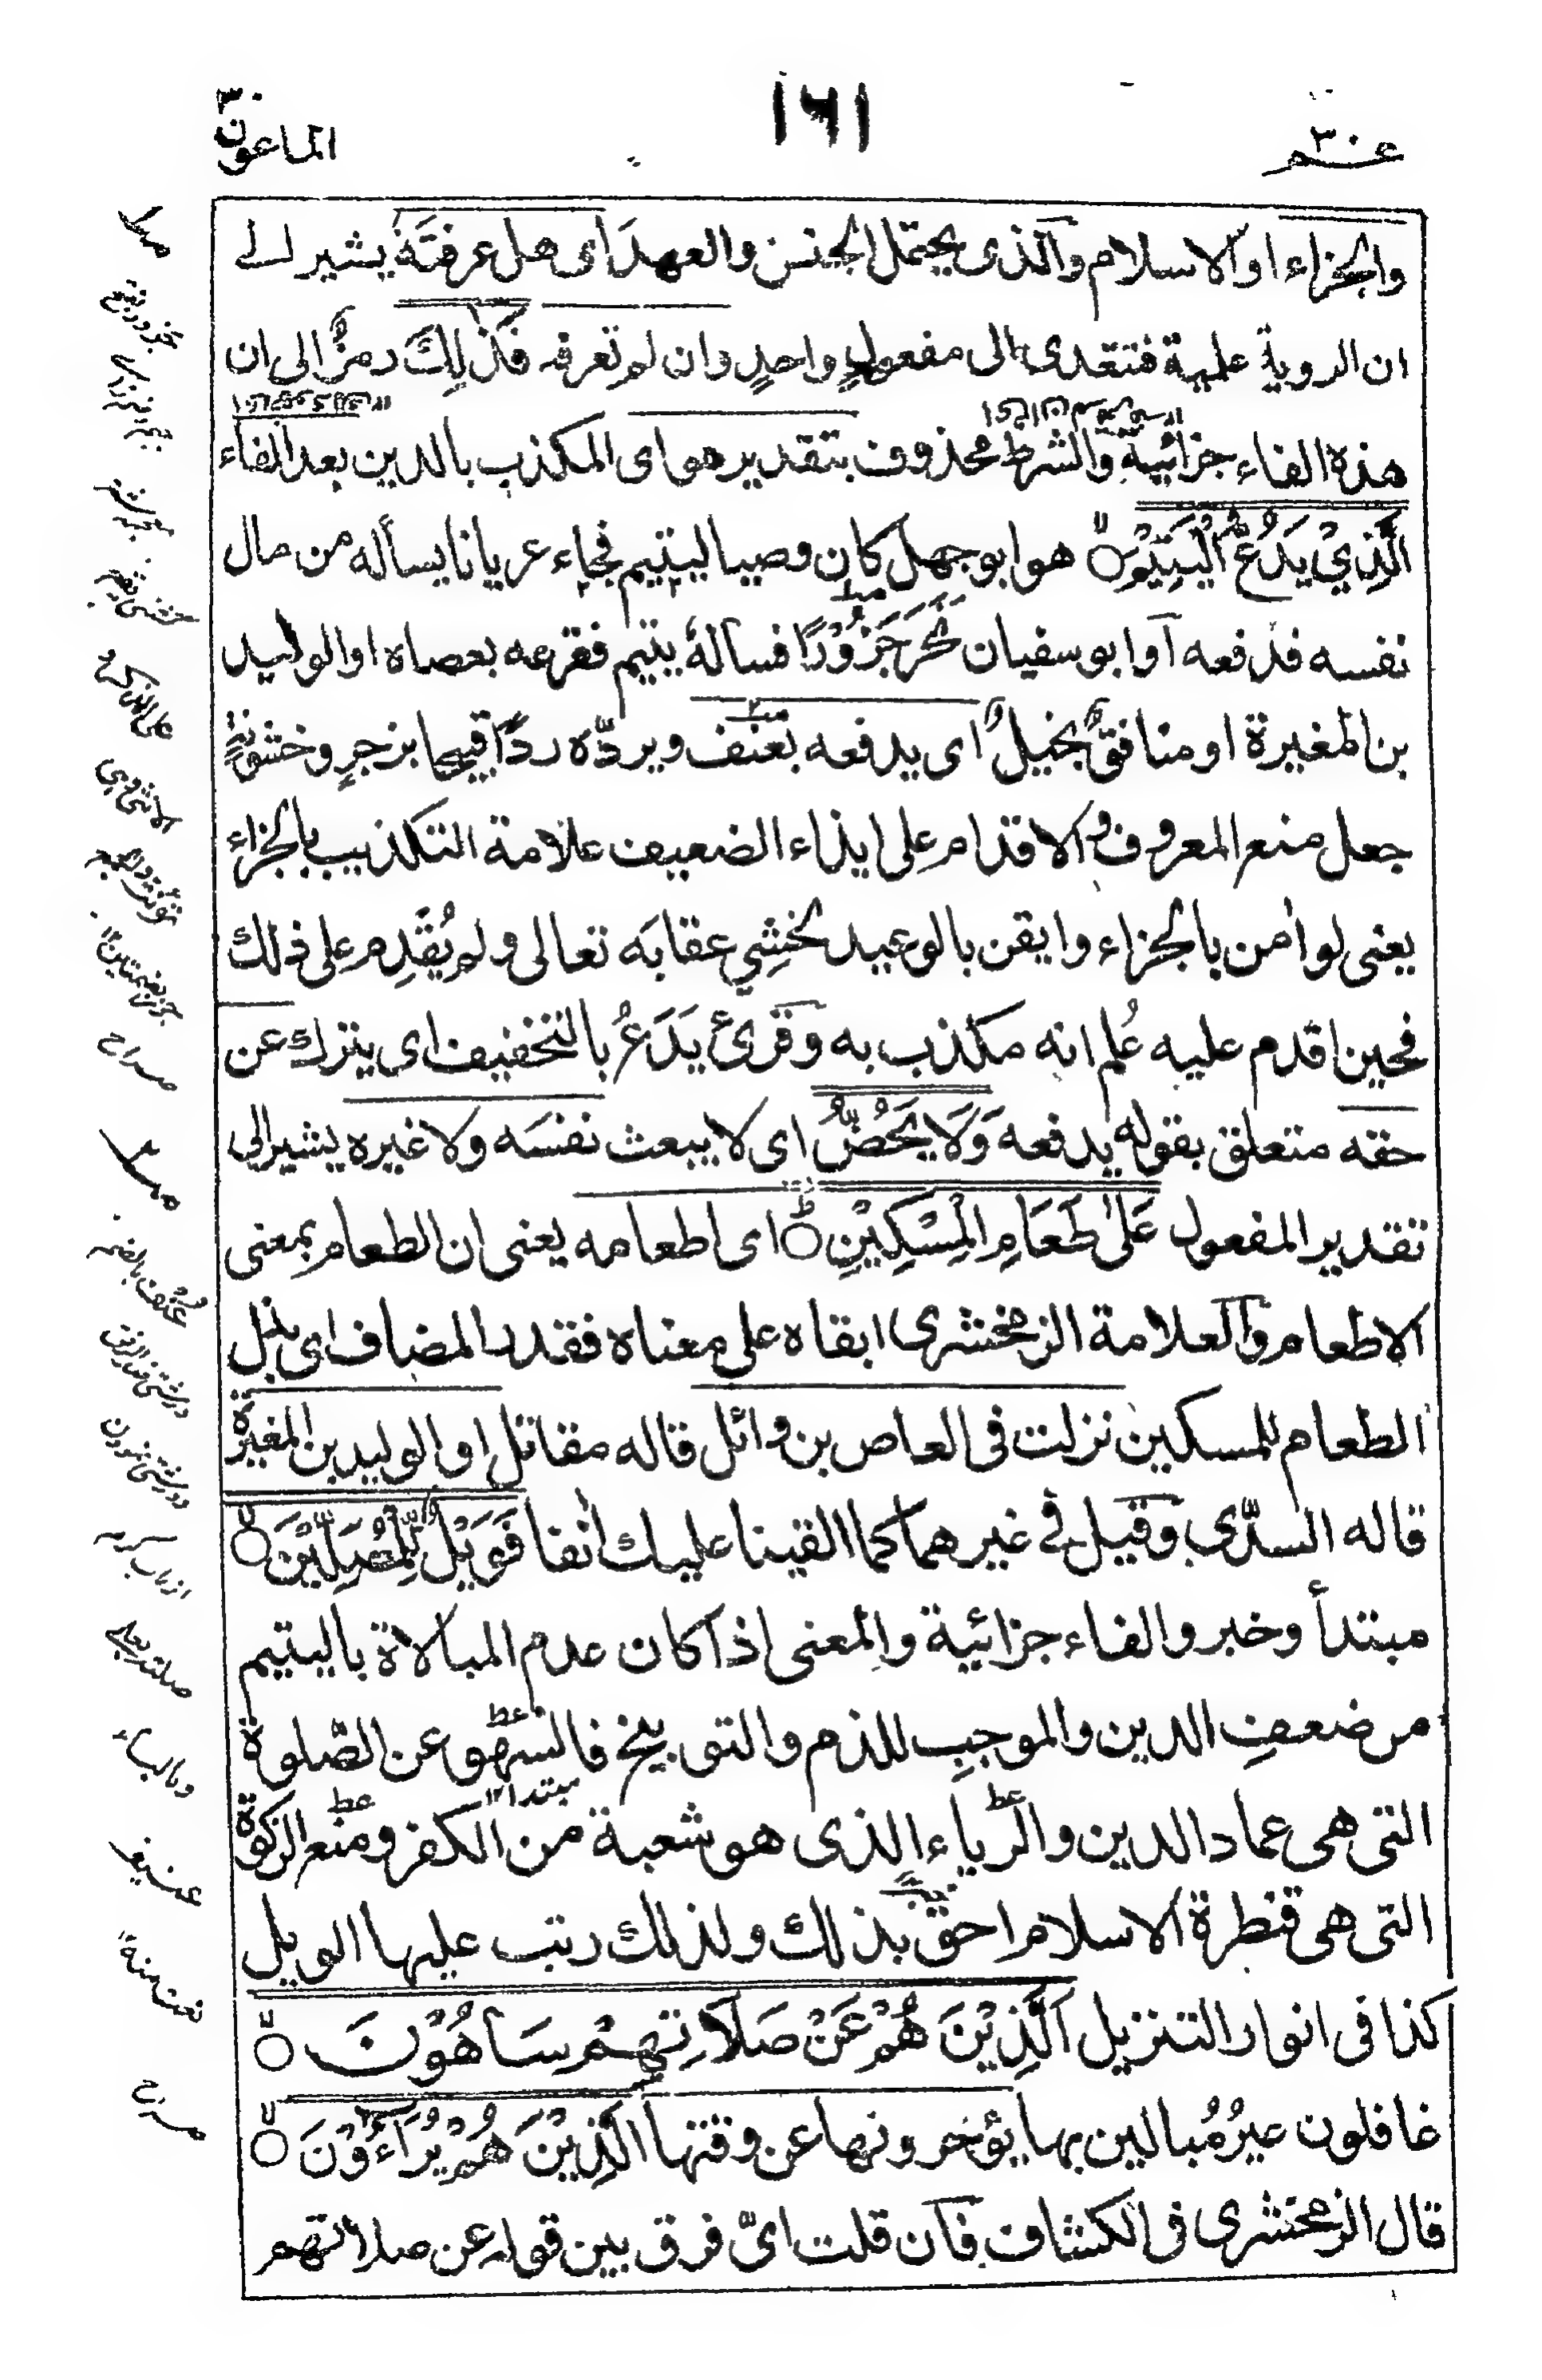 عم ٣٠
١٦١
الماعون ٣٠
والجزاء او الاسلام والذى يحتمل الجنس والعهدَ اى هل عرفتَهٗ يشير الے
ان الروية علمية فتتعدى الى مفعولٍ واحدٍ وان لم تعرفه فَذٰلِكَ رمزٌ الى ان
هذه الفاء جزائيةٌ والشرط محذوف بتقدير هو اى المكذب بالدين بعد الفاء
الَّذِيْ يَدُعُّ الْيَتِيْمَ ۙ هو ابو جهل كان وصيا ليتيم فجاء عريانا يسأله من مال
نفسه فدفعه او ابو سفيان نَحَرَ جَزُوْرًا فسالهٗ يتيم فقرعه بعصاه او الوليد
بن المغيرة او منافقٌ بخيلٌ اى يدفعه بعنف ويردّه ردًّا قبيحا بزجرٍ وخشونةٍ
جعل منع المعروف والاقدام على ايذاء الضعيف علامة التكذيب بالجزاء
يعنى لو اٰمن بالجزاء وايقن بالوعيد لخشِي عقابَه تعالى ولم يُقدِم على ذلك
فحين اقدم عليه عُلم انه مكذب به وقرئ يَدَعُ بالتخفيف اى يترك عن
حقه متعلق بقوله يدفعه وَلَا يَحُضُّ اى لا يبعث نفسَه ولا غيره يشير الى
تقدير المفعول عَلٰى طَعَامِ الْمِسْكِيْنِ ۭ اى اطعامه يعنى ان الطعام بمعنى
الاطعام والعلامة الزمخشرى ابقاه على معناه فقدر المضاف اى بذل
الطعام للمسكين نزلت فى العاص بن وائل قاله مقاتل او الوليد بن المغيرة
قاله السدّي وقيل فى غيرهما كما القينا عليك اٰنفا فَوَيْلٌ لِّلْمُصَلِّيْنَ ۙ
مبتدأ وخبر والفاء جزائية والمعنى اذا كان عدم المبالاة باليتيم
من ضعفِ الدين والموجبِ للذم والتوبيخ فالسَّهو عن الصّلوة
التى هى عماد الدين والرياء الذى هو شعبة من الكفر ومنع الزكوة
التى هى قنطرة الاسلام احق بذلك ولذلك رتب عليها الويل
كذا فى انوار التنزيل الَّذِيْنَ هُمْ عَنْ صَلَاتِهِمْ سَاهُوْنَ ۙ
غافلون غيرُ مُبالين بها يؤخرونها عن وقتها الَّذِيْنَ هُمْ يُرَآءُوْنَ ۙ
قال الزمخشرى فى الكشاف فان قلت اىّ فرق بين قوله عن صلاتهم